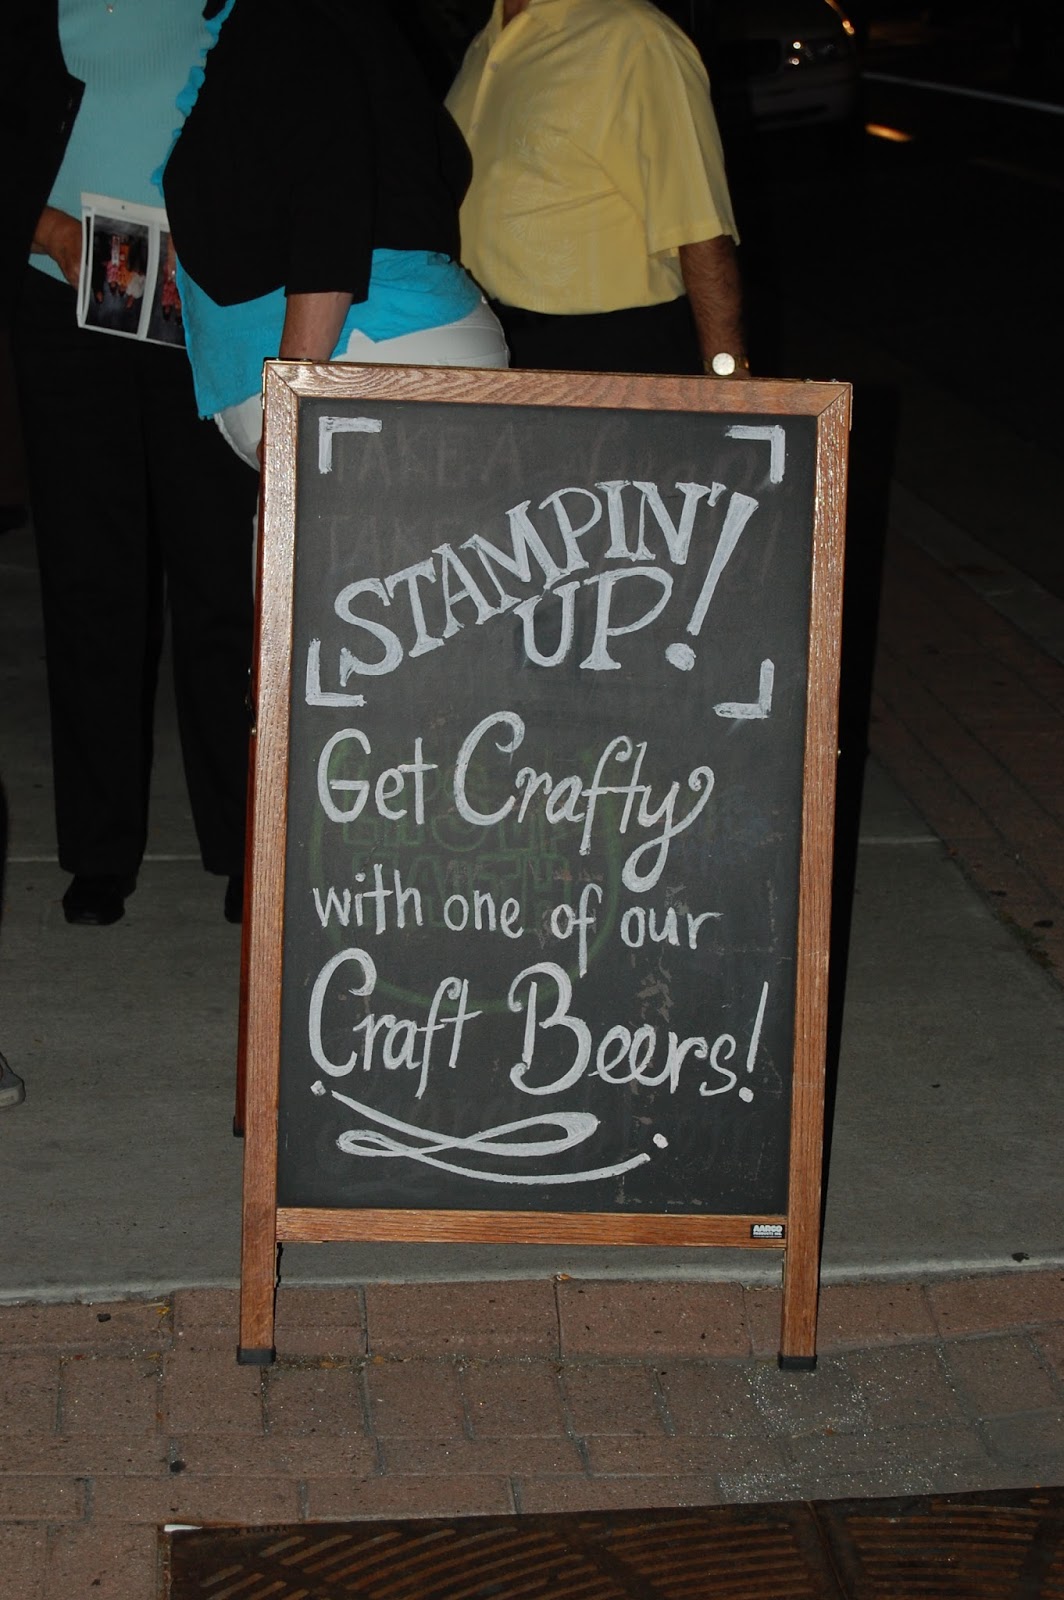 STAMPIN'
UP!
Get Crafty
with one of our
Craft Beers!
AARCO